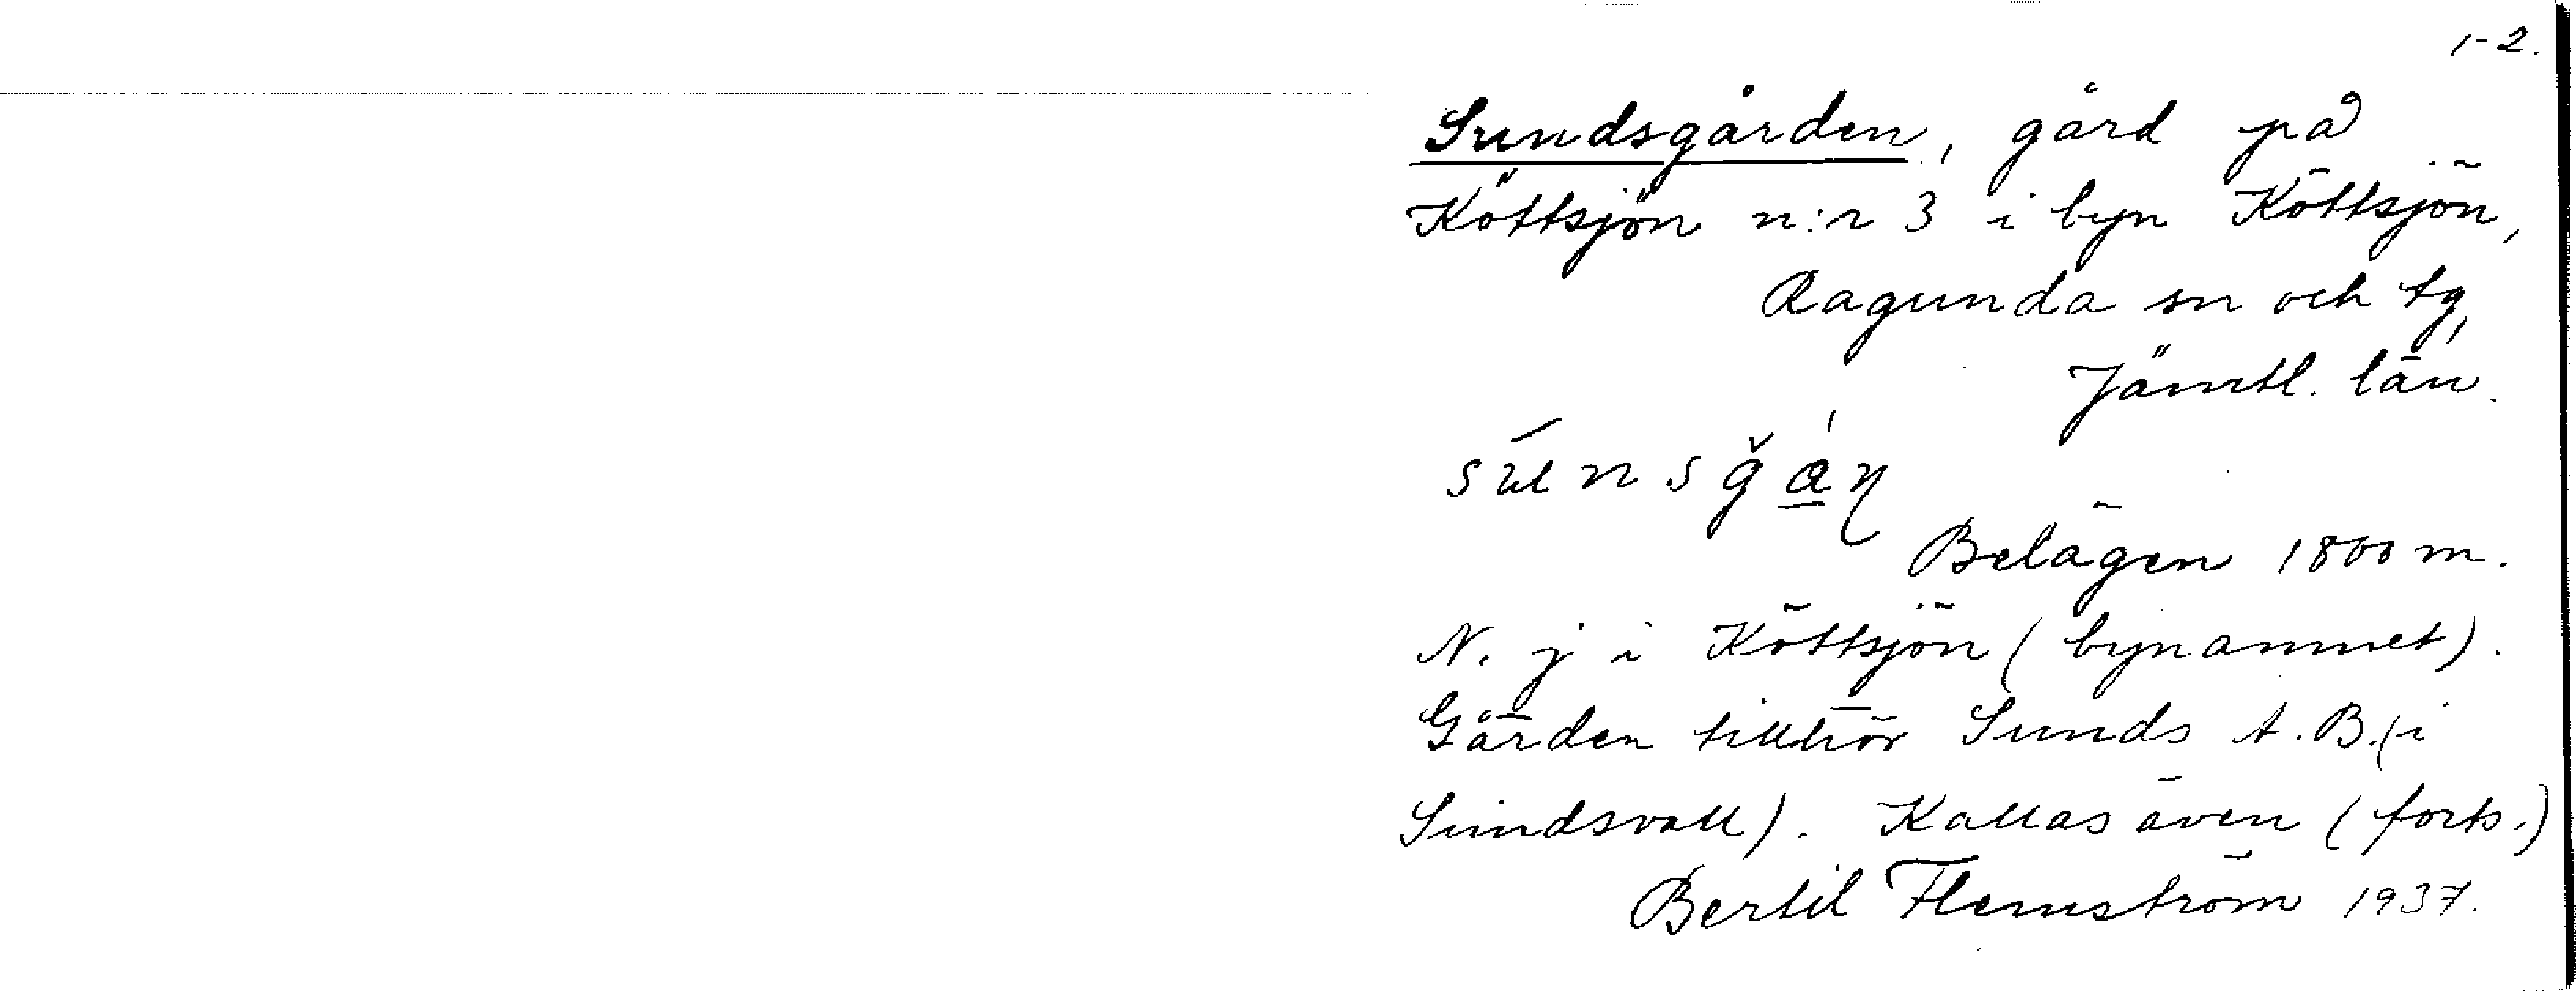 1-2.
Sundsgården, gård på
Köttsjön n:r 3 i byn Köttsjön,
Ragunda sn och tg,
Jämtl. län.
Belägen 1800 m.
N. j i Köttsjön (bynamnet).
Gården tillhör Sunds A.B. (i
Sundsvall). Kallas även (forts.)
Bertil Flemström 1937.